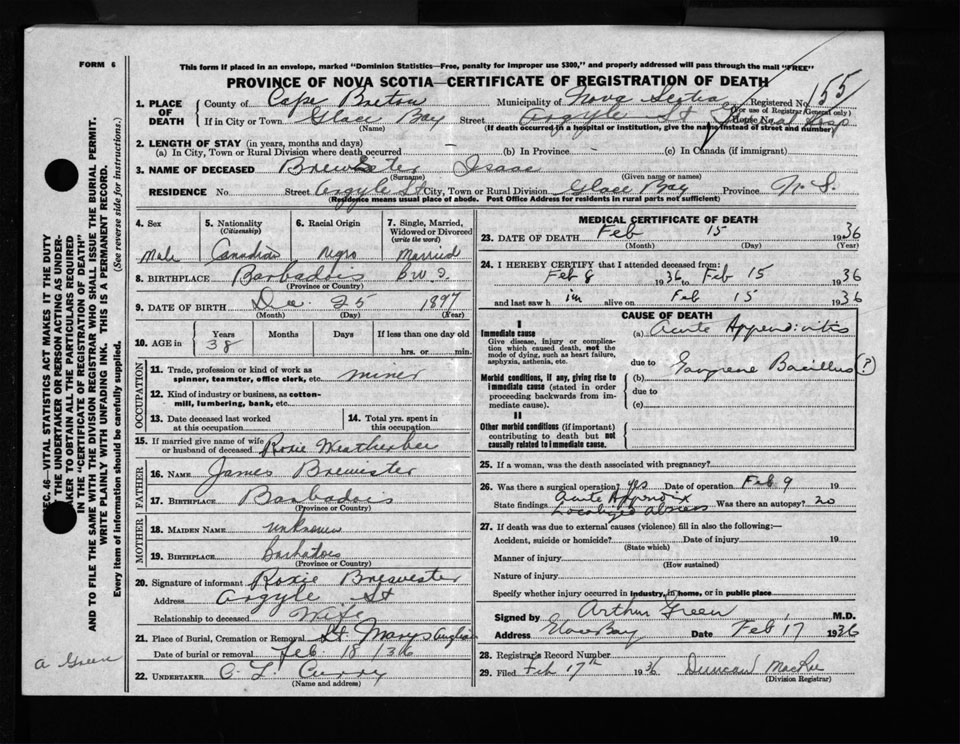 FORM 6
This form if placed in an envelope, marked "Dominion Statistics—Free, penalty for improper use $300," and properly addressed will pass through the mail "FREE"
PROVINCE OF NOVA SCOTIA—CERTIFICATE OF REGISTRATION OF DEATH
155
1. PLACE OF DEATH County of Cape Breton Municipality of Nova Scotia Registered No.
(For use of Registrar General only)
If in City or Town Glace Bay Street Argyle St House No. General Hosp
(Name) (If death occurred in a hospital or institution, give the name instead of street and number)
2. LENGTH OF STAY (in years, months and days)
(a) In City, Town or Rural Division where death occurred (b) In Province (c) In Canada (if immigrant)
3. NAME OF DECEASED Brewster Isaac
(Surname) (Given name or names)
RESIDENCE No. Street Argyle St City, Town or Rural Division Glace Bay Province N. S.
(Residence means usual place of abode. Post Office Address for residents in rural parts not sufficient)
4. Sex 5. Nationality (Citizenship) 6. Racial Origin 7. Single, Married, Widowed or Divorced (write the word)
Male Canadian Negro Married
8. BIRTHPLACE Barbadois B W I.
(Province or Country)
9. DATE OF BIRTH Dec. 25 1897
(Month) (Day) (Year)
10. AGE in Years Months Days If less than one day old
38 hrs. or min.
OCCUPATION
11. Trade, profession or kind of work as spinner, teamster, office clerk, etc. miner
12. Kind of industry or business, as cotton-mill, lumbering, bank, etc.
13. Date deceased last worked at this occupation 14. Total yrs. spent in this occupation
15. If married give name of wife or husband of deceased Roxie Weatherbee
FATHER
16. NAME James Brewister
17. BIRTHPLACE Barbadois
(Province or Country)
MOTHER
18. MAIDEN NAME unknown
19. BIRTHPLACE Barbatois
(Province or Country)
20. Signature of informant Roxie Brewester
Address Argyle St
Relationship to deceased Wife
21. Place of Burial, Cremation or Removal St. Marys Anglican
Date of burial or removal Feb 18 / 36
22. UNDERTAKER C L Curry
(Name and address)
MEDICAL CERTIFICATE OF DEATH
23. DATE OF DEATH Feb 15 1936
(Month) (Day) (Year)
24. I HEREBY CERTIFY that I attended deceased from:
Feb 8 1936 to Feb 15 1936
and last saw h im alive on Feb 15 1936
CAUSE OF DEATH
I
Immediate cause
Give disease, injury or complication which caused death, not the mode of dying, such as heart failure, asphyxia, asthenia, etc.
(a) Acute Appendicitis
due to
Morbid conditions, if any, giving rise to immediate cause (stated in order proceeding backwards from immediate cause).
(b) Gangrene Bacillus (?)
due to
(c)
II
Other morbid conditions (if important) contributing to death but not causally related to immediate cause.
25. If a woman, was the death associated with pregnancy?
26. Was there a surgical operation? yes Date of operation Feb 9 19
State findings Acute Appendix Localized abscess Was there an autopsy? no
27. If death was due to external causes (violence) fill in also the following:—
Accident, suicide or homicide? Date of injury 19
(State which)
Manner of injury
(How sustained)
Nature of injury
Specify whether injury occurred in industry, in home, or in public place
Signed by Arthur Green M.D.
Address Glace Bay Date Feb 17 1936
28. Registrar's Record Number
29. Filed Feb 17th 1936 Duncan MacRae
(Division Registrar)
SEC. 46—VITAL STATISTICS ACT MAKES IT THE DUTY OF THE UNDERTAKER OR PERSON ACTING AS UNDERTAKER TO OBTAIN ALL THE PARTICULARS REQUIRED IN THE "CERTIFICATE OF REGISTRATION OF DEATH" AND TO FILE THE SAME WITH THE DIVISION REGISTRAR WHO SHALL ISSUE THE BURIAL PERMIT.
WRITE PLAINLY WITH UNFADING INK. THIS IS A PERMANENT RECORD.
Every item of information should be carefully supplied. (See reverse side for instructions.)
A Green